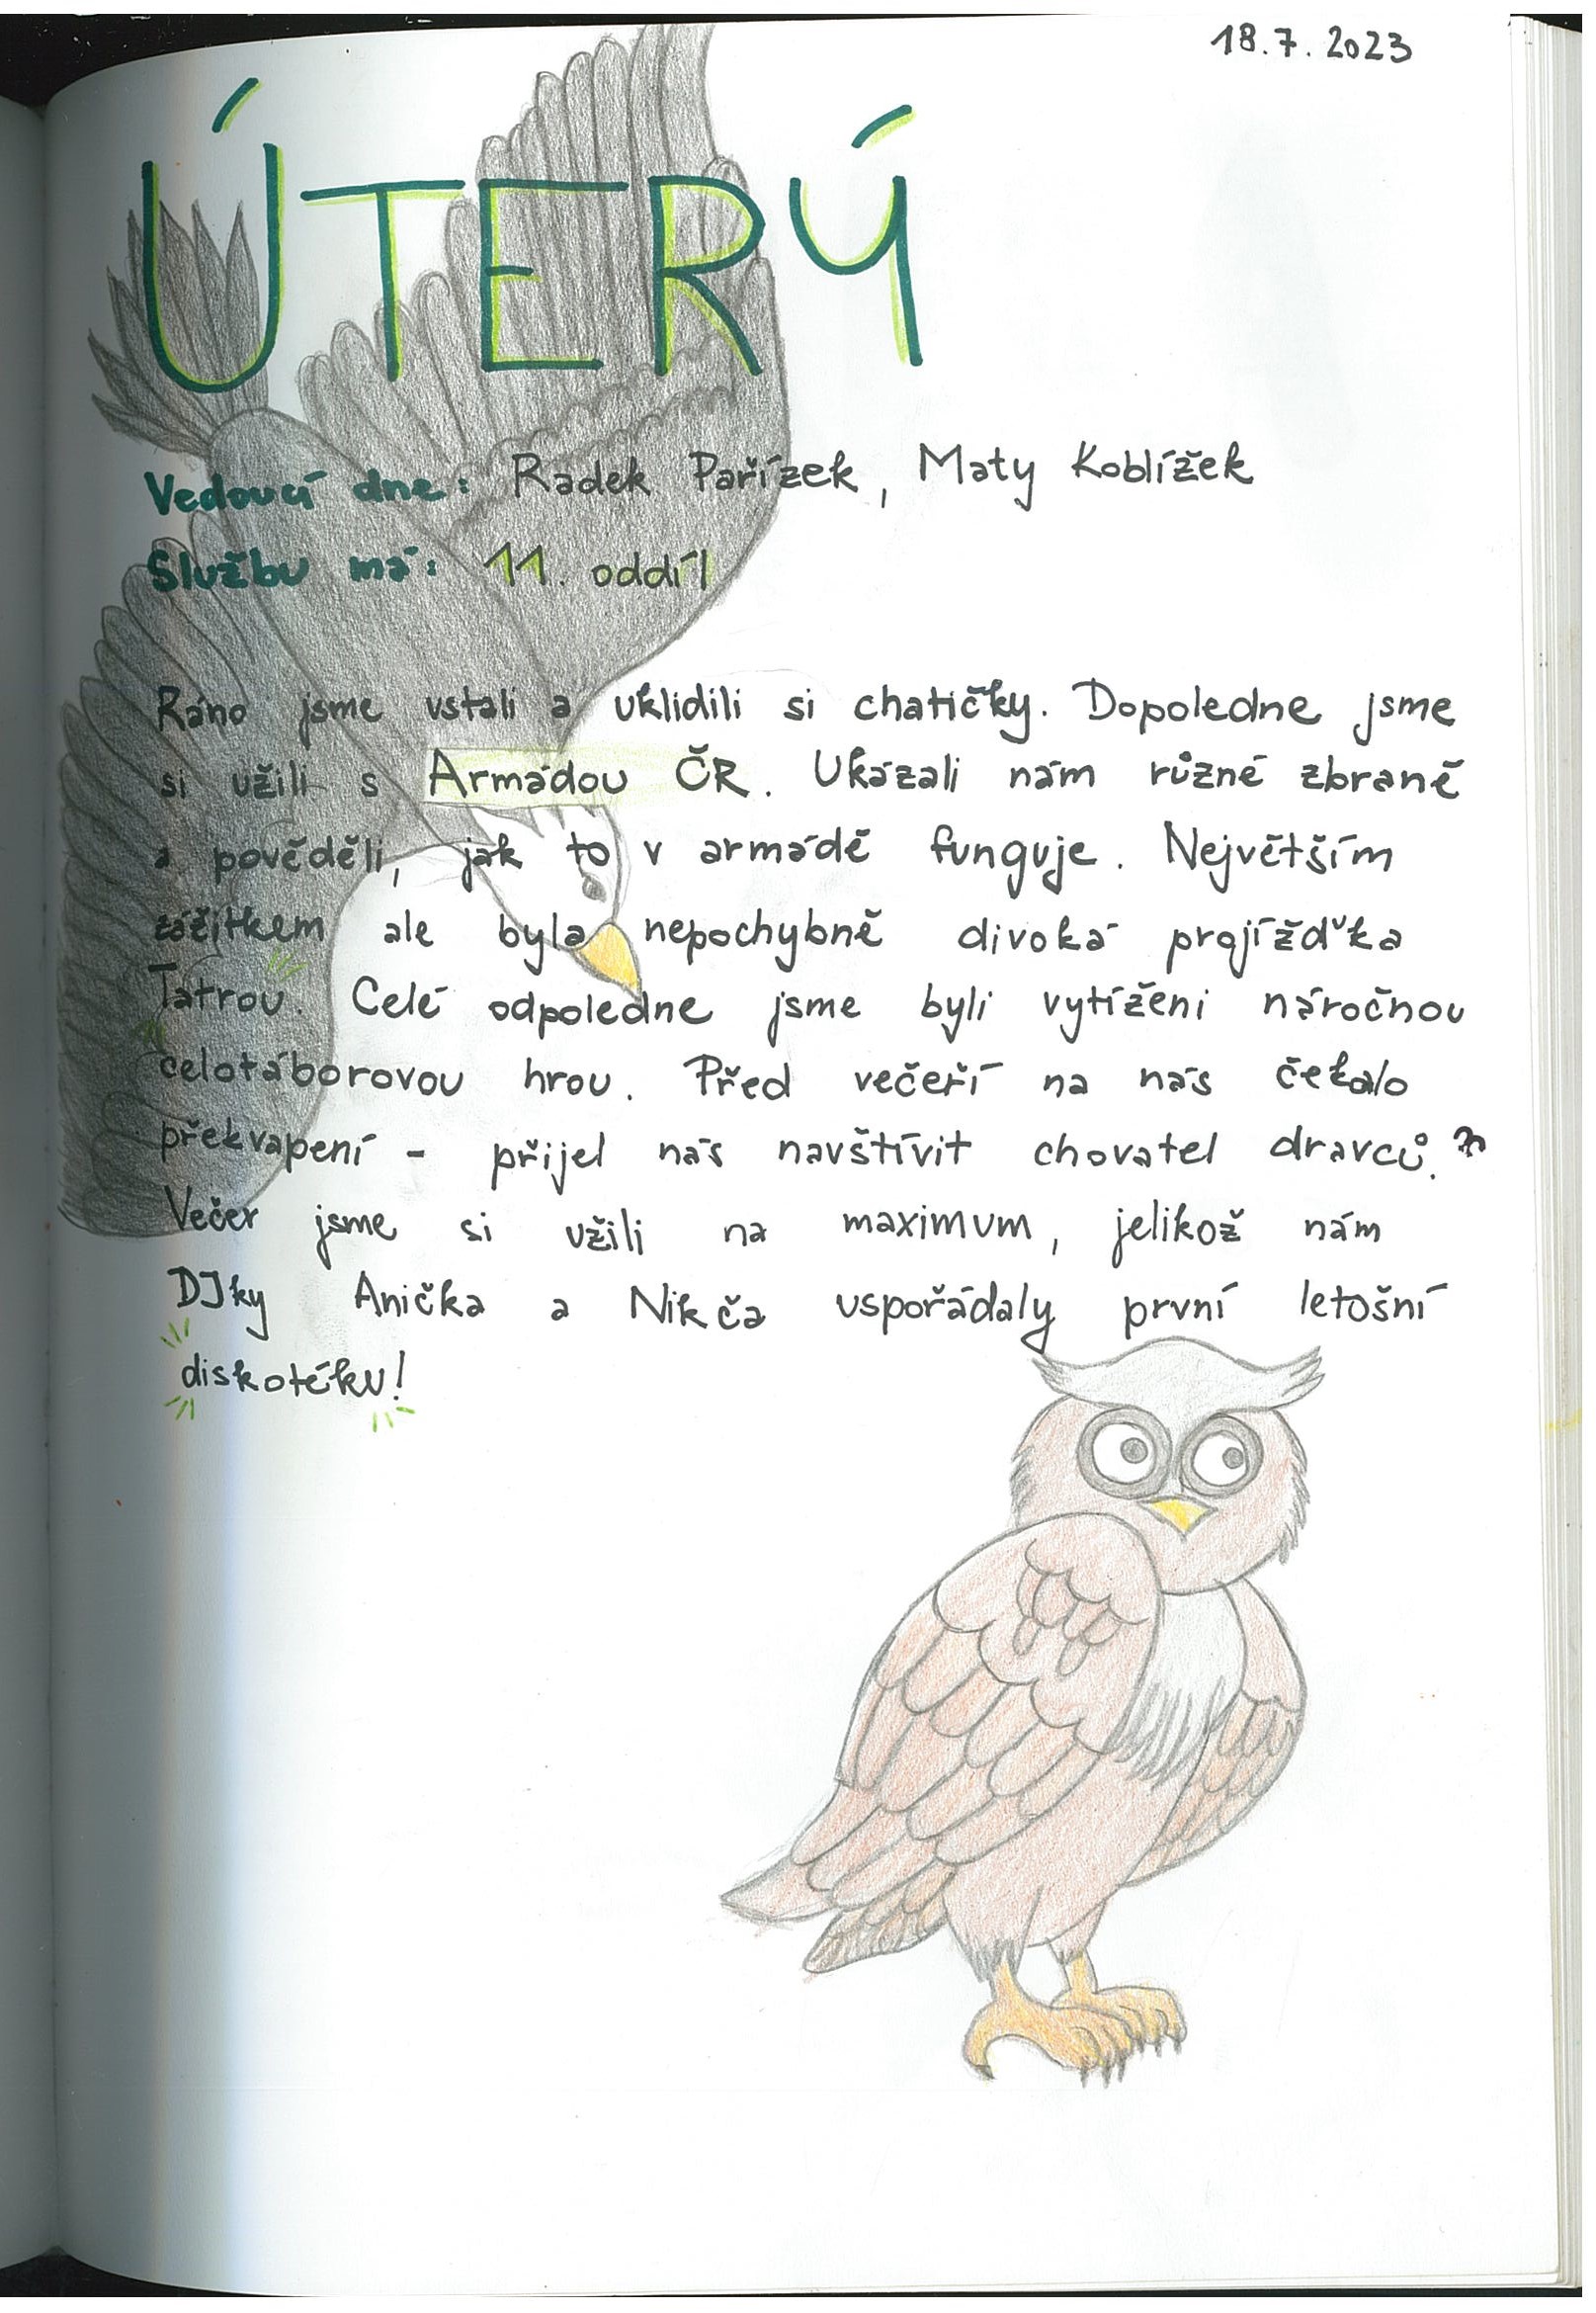 18.7.2023
ÚTERÝ
Vedoucí dne: Radek Pařízek, Maty Koblížek
Službu má: 11. oddíl
Ráno jsme vstali a uklidili si chatičky. Dopoledne jsme
si užili s Armádou ČR. Ukázali nám různé zbraně
a pověděli, jak to v armádě funguje. Největším
zážitkem ale byla nepochybně divoká projížďka
Tatrou. Celé odpoledne jsme byli vytíženi náročnou
celotáborovou hrou. Před večeří na nás čekalo
překvapení - přijel nás navštívit chovatel dravců.
Večer jsme si užili na maximum, jelikož nám
DJky Anička a Nikča uspořádaly první letošní
diskotéku!